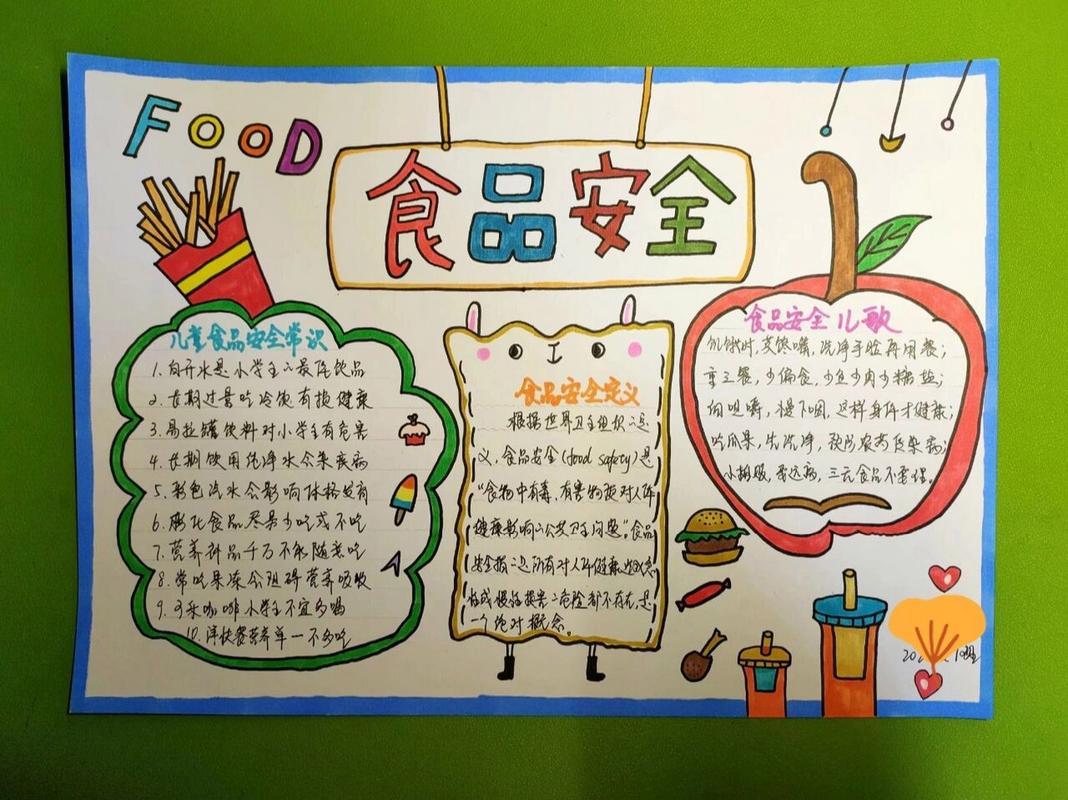 FOOD
食品安全
儿童食品安全常识
1. 白开水是小学生的最佳饮品
2. 长期过量吃冷饮有损健康
3. 易拉罐饮料对小学生有危害
4. 长期饮用纯净水会染疾病
5. 彩色汽水会影响体格发育
6. 膨化食品尽量少吃或不吃
7. 营养补品千万不能随意吃
8. 常吃果冻会阻碍营养吸收
9. 可乐咖啡小学生不宜多喝
10. 洋快餐营养单一不多吃
食品安全定义
根据世界卫生组织的定
义,食品安全(food safety)是
“食物中有毒、有害物质对人体
健康影响的公共卫生问题”。食品
安全指的是所有对人体健康造成急
性或慢性损害的危险都不存在,是
一个绝对概念。
食品安全儿歌
饥饿时,莫馋嘴,洗净手脸再用餐;
重三餐,少偏食,少鱼少肉少糖盐;
细咀嚼,慢下咽,这样身体才健康;
吃瓜果,先洗净,残留农药传染病;
小摊贩,零达病,三无食品不要理。